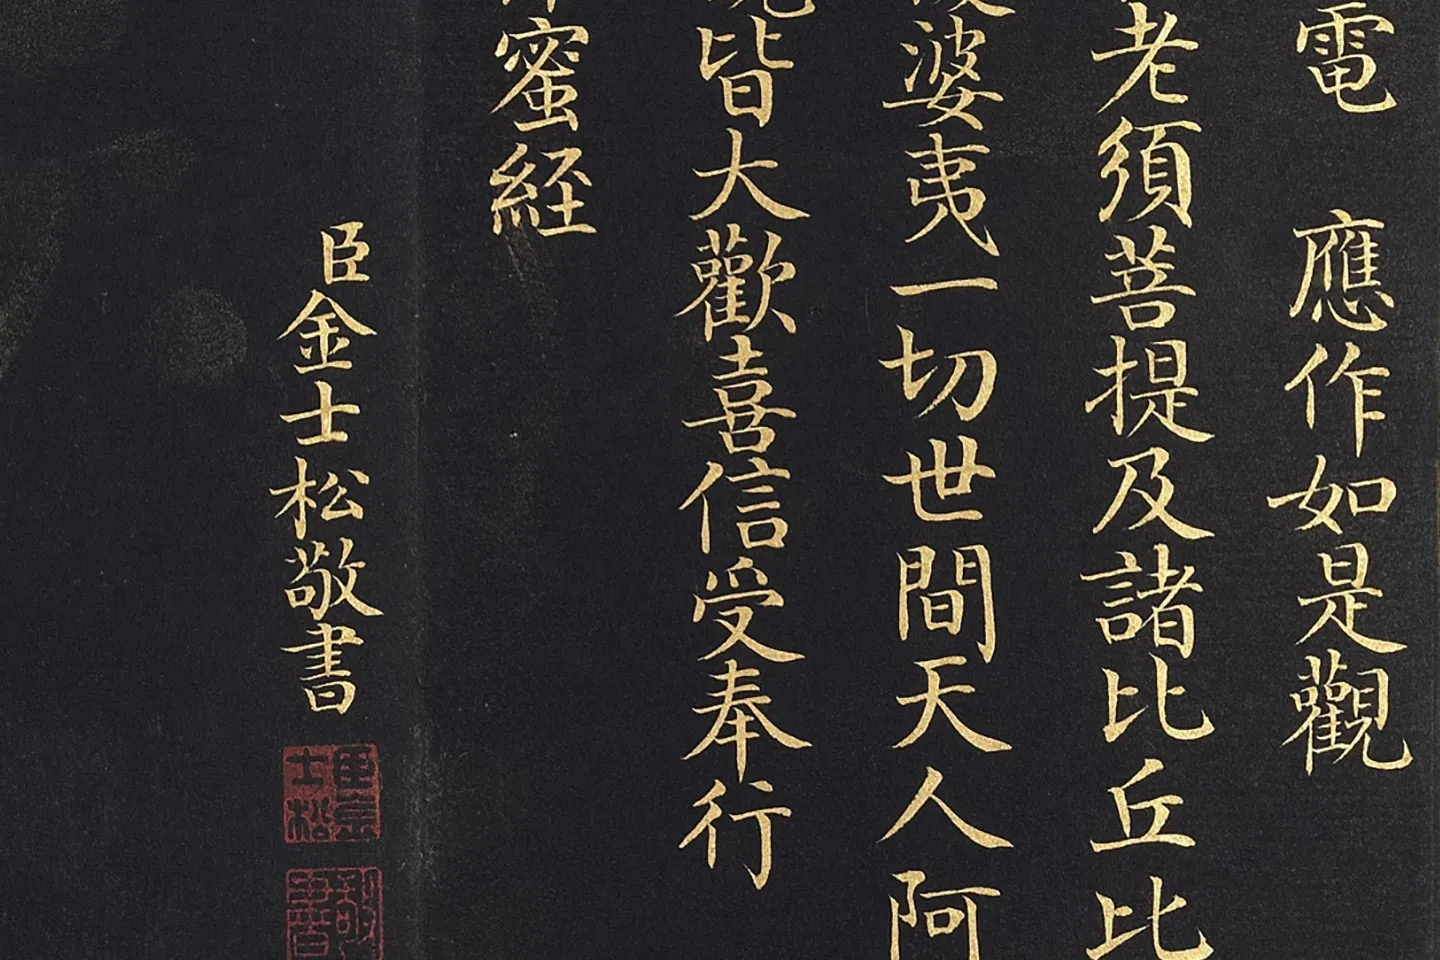 電 應作如是觀
老須菩提及諸比丘比
婆夷一切世間天人阿
皆大歡喜信受奉行
蜜経
臣金士松敬書
臣士松
敬書